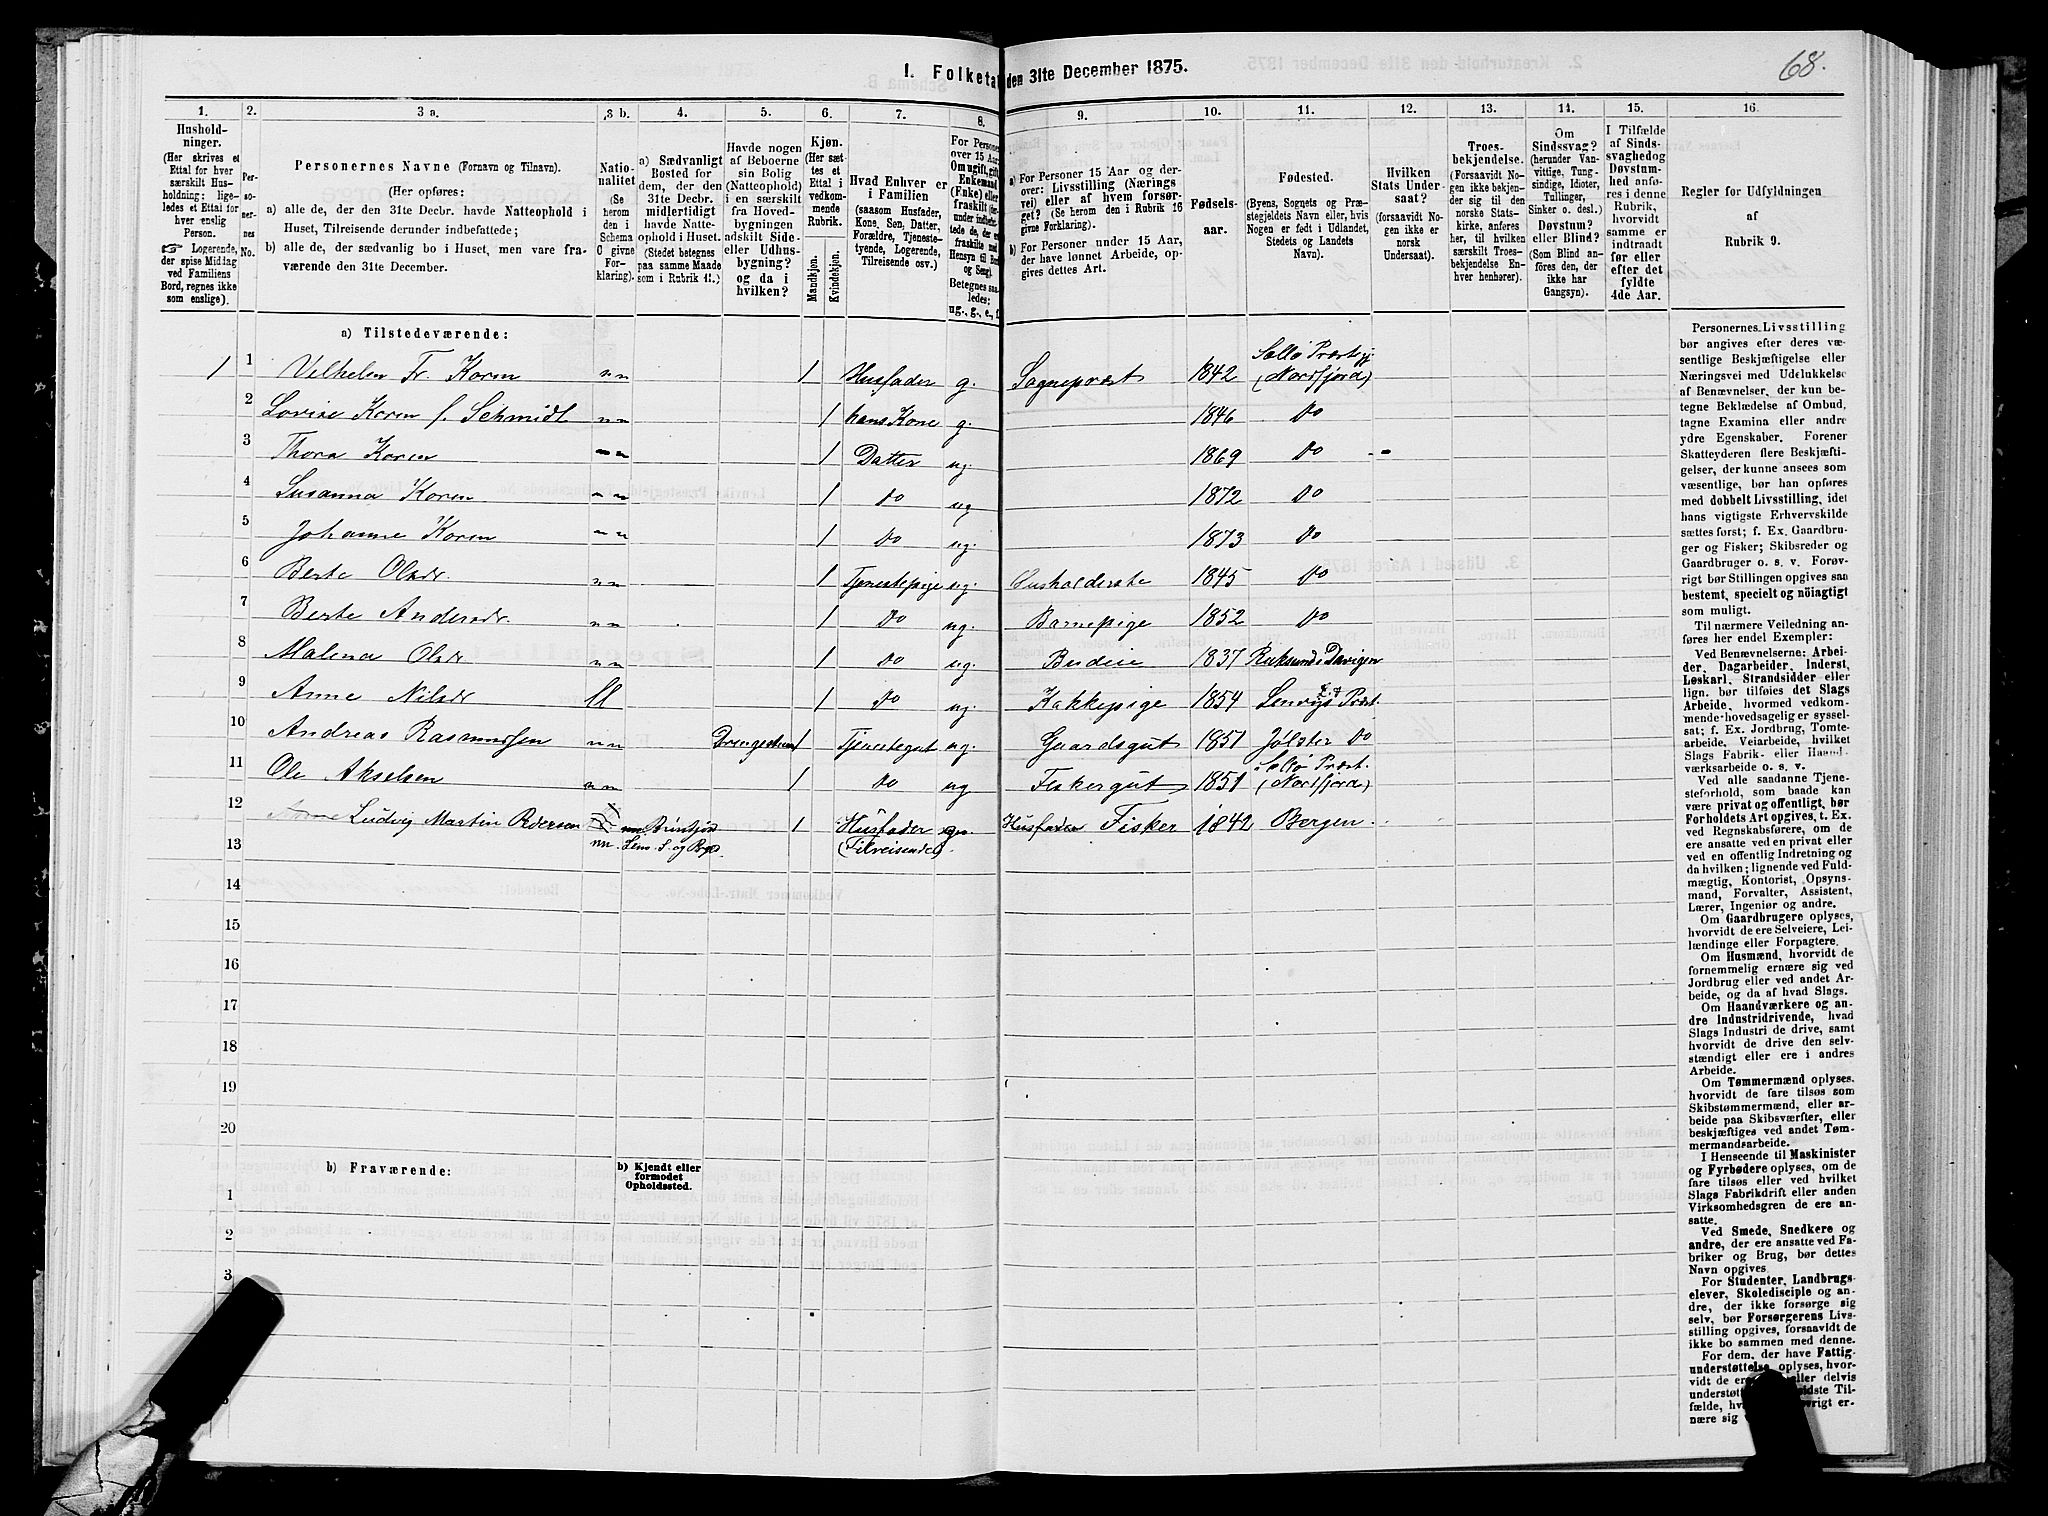 68.
1. Folketa den 31te December 1875.
1.
Hushold-
ninger.
(Her skrives et
Ettal for hver
særskilt Hus-
holdning; lige-
ledes et Ettal for
hver enslig
Person.
Logerende,
der spise Middag
ved Familiens
Bord, regnes ikke
som enslige).
2.
Per-
so-
ner-
nes
No.
3 a.
Personernes Navne (Fornavn og Tilnavn).
(Her opføres:
a) alle de, der den 31te Decbr. havde Natteophold i
Huset, Tilreisende derunder indbefattede;
b) alle de, der sædvanlig bo i Huset, men vare fra-
værende den 31te December.
3 b.
Natio-
nalitet
(Se
herom
den i
Schema
C givne
For-
klaring).
4.
a) Sædvanligt
Bosted for
dem, der den
31te Decbr.
midlertidigt
havde Natte-
ophold i Huset.
(Stedet betegnes
paa samme Maade
som i Rubrik 11.)
5.
Havde nogen
af Beboerne
sin Bolig
(Natteophold)
i en særskilt
fra Hoved-
bygningen
adskilt Side-
eller Udhus-
bygning?
og da i
hvilken?
6.
Kjøn.
(Her sæt-
tes et
Ettal i
vedkom-
mende
Rubrik.
Mandkjøn.
Kvindekjøn.
7.
Hvad Enhver er
i Familien
(saasom Husfader,
Kone, Søn, Datter,
Forældre, Tjeneste-
tyende, Logerende,
Tilreisende osv.)
8.
For Personer
over 15 Aar:
Om ugift, gift,
Enkemand
(Enke) eller
fraskilt
Betegnes saa-
ledes:
ug., g., e., f.
9.
a) For Personer 15 Aar og der-
over: Livsstilling (Nærings
vei) eller af hvem forsør-
get? (Se herom den i Rubrik 16
givne Forklaring).
b) For Personer under 15 Aar,
der have lønnet Arbeide, op-
gives dettes Art.
10.
Fødsels-
aar.
11.
Fødested.
(Byens, Sognets og Præ-
stegjeldets Navn eller, hvis
Nogen er født i Udlandet,
Stedets og Landets
Navn).
12.
Hvilken
Stats Under-
saat?
(forsaavidt No-
gen ikke er
norsk
Undersaat).
13.
Troes-
bekjendelse.
(Forsaavidt No-
gen ikke bekjen-
der sig til den
norske Stats-
kirke, anføres
her, til hvilken
særskilt Troes-
bekjendelse En-
hver henhører).
14.
Om
Sindssvag?
(herunder Van-
vittige, Tung-
sindige, Idioter,
Tullinger,
Sinker o. desl.)
Døvstum?
eller Blind?
(Som Blind an-
føres den, der
ikke har
Gangsyn).
15.
I Tilfælde
af Sinds-
svaghedog
Døvstum-
hed anfø-
res i denne
Rubrik,
hvorvidt
samme er
indtraadt
før eller
efter det
fyldte
4de Aar.
16.
Regler for Udfyldningen
af
Rubrik 9.
a) Tilstedeværende:
1 1 Vilhelm Fr. Koren n n 1 Husfader g. Sognepræst 1842 Sellø Præstgj (Nordfjord)
2 Lovise Koren f. Schmidt n n 1 hans Kone g. 1846 Do
3 Thora Koren n n 1 Datter ug. 1869 Do
4 Susanna Koren n n 1 do ug 1872 Do
5 Johanne Koren n n 1 Do ug. 1873 Do
6 Berte Olsdr. n n 1 Tjenestepige ug. Husholderske 1845 Do
7 Berte Andersdr. n n 1 Do ug. Barnepige 1852 Do
8 Malena Olsdr n n 1 Do ug. Budeie 1837
9 Anne Nilsdr 1 Do ug. Kokkepige 1854 Præst.
10 Andreas Rasmussen n n Drengestuen 1 Tjenestegut ug. Gaardsgut 1851 Jølster Do
11 Ole Akselsen n n 1 Do ug Fiskergut 1851 Sellø Præst. (Nordfjord)
12 Ludvig Martin Pedersen nn 1 Husfader (Tilreisende) Husfader Fisker 1842 Bergen
13
14
15
16
17
18
19
20
b) Fraværende:
b) Kjendt eller
formodet
Opholdssted.
1
2
3
Personernes Livsstilling
bør angives efter deres væ-
sentlige Beskjæftigelse eller
Næringsvei med Udelukkelse
af Benævnelser, der kun be-
tegne Beklædelse af Ombud,
tagne Examina eller andre
ydre Egenskaber. Forener
Skatteyderen flere Beskjæfti-
gelser, der kunne ansees som
væsentlige, bør han opføres
med dobbelt Livsstilling, idet
hans vigtigste Erhvervskilde
sættes først; f. Ex. Gaardbru-
ger og Fisker; Skibsreder og
Gaardbruger o. s. v. Forøv-
rigt bør Stillingen opgives saa
bestemt, specielt og nöiagtigt
som muligt.
Til nærmere Veiledning an-
føres her endel Exempler:
Ved Benævnelserne: Arbei-
der, Dagarbeider, Inderst,
Løskarl, Strandsidder eller
lign. bør tilføies det Slags
Arbeide, hvormed vedkom-
mende hovedsagelig er syssel-
sat; f. Ex. Jordbrug, Tomte-
arbeide, Veiarbeide, hvilket
Slags Fabrik- eller Haand-
værksarbeide o. s. v.
Ved alle saadanne Tjene-
steforhold, som baade kan
være privat og offentligt, bør
Forholdets Art opgives, t. Ex.
ved Regnskabsførere, om de
ere ansatte ved en privat eller
ved en offentlig Indretning og
da hvilken; lignende ved Fuld-
mægtig, Kontorist, Opsyns-
mand, Forvalter, Assistent,
Lærer, Ingeniør og andre.
Om Gaardbrugere oplyses,
hvorvidt de ere Selveiere, Lei-
lændinge eller Forpagtere.
Om Husmænd, hvorvidt de
fornemmelig ernære sig ved
Jordbrug eller ved andet Ar-
beide, og da af hvad Slags.
Om Haandværkere og an-
dre Industridrivende, hvad
Slags Industri de drive, samt
hvorvidt de drive den selv-
stændigt eller ere i andres
Arbeide.
Om Tømmermænd oplyses,
hvorvidt de fare tilsøs som
Skibstømmermænd, eller ar-
beide paa Skibsværfter, eller
beskjæftiges ved andet Tøm-
mermandsarbeide.
I Henseende til Maskinister
og Fyrbødere oplyses, om de
fare tilsøs eller ved hvilket
Slags Fabrikdrift eller anden
Virksomhedsgren de ere an-
satte.
Ved Smede, Snedkere og
andre, der ere ansatte ved Fa-
briker og Brug, bør dettes
Navn opgives.
For Studenter, Landbrugs-
elever, Skoledisciple og an-
dre, der ikke forsørge sig
selv, bør Forsørgerens Livs-
stilling opgives, forsaavidt de
ikke bo sammen med denne.
For dem, der have Fattig-
understøttelse oplyses, hvor-
vidt de ere eller delvis
understøt dste Til-
fælde, hv rigt er-
nære sig